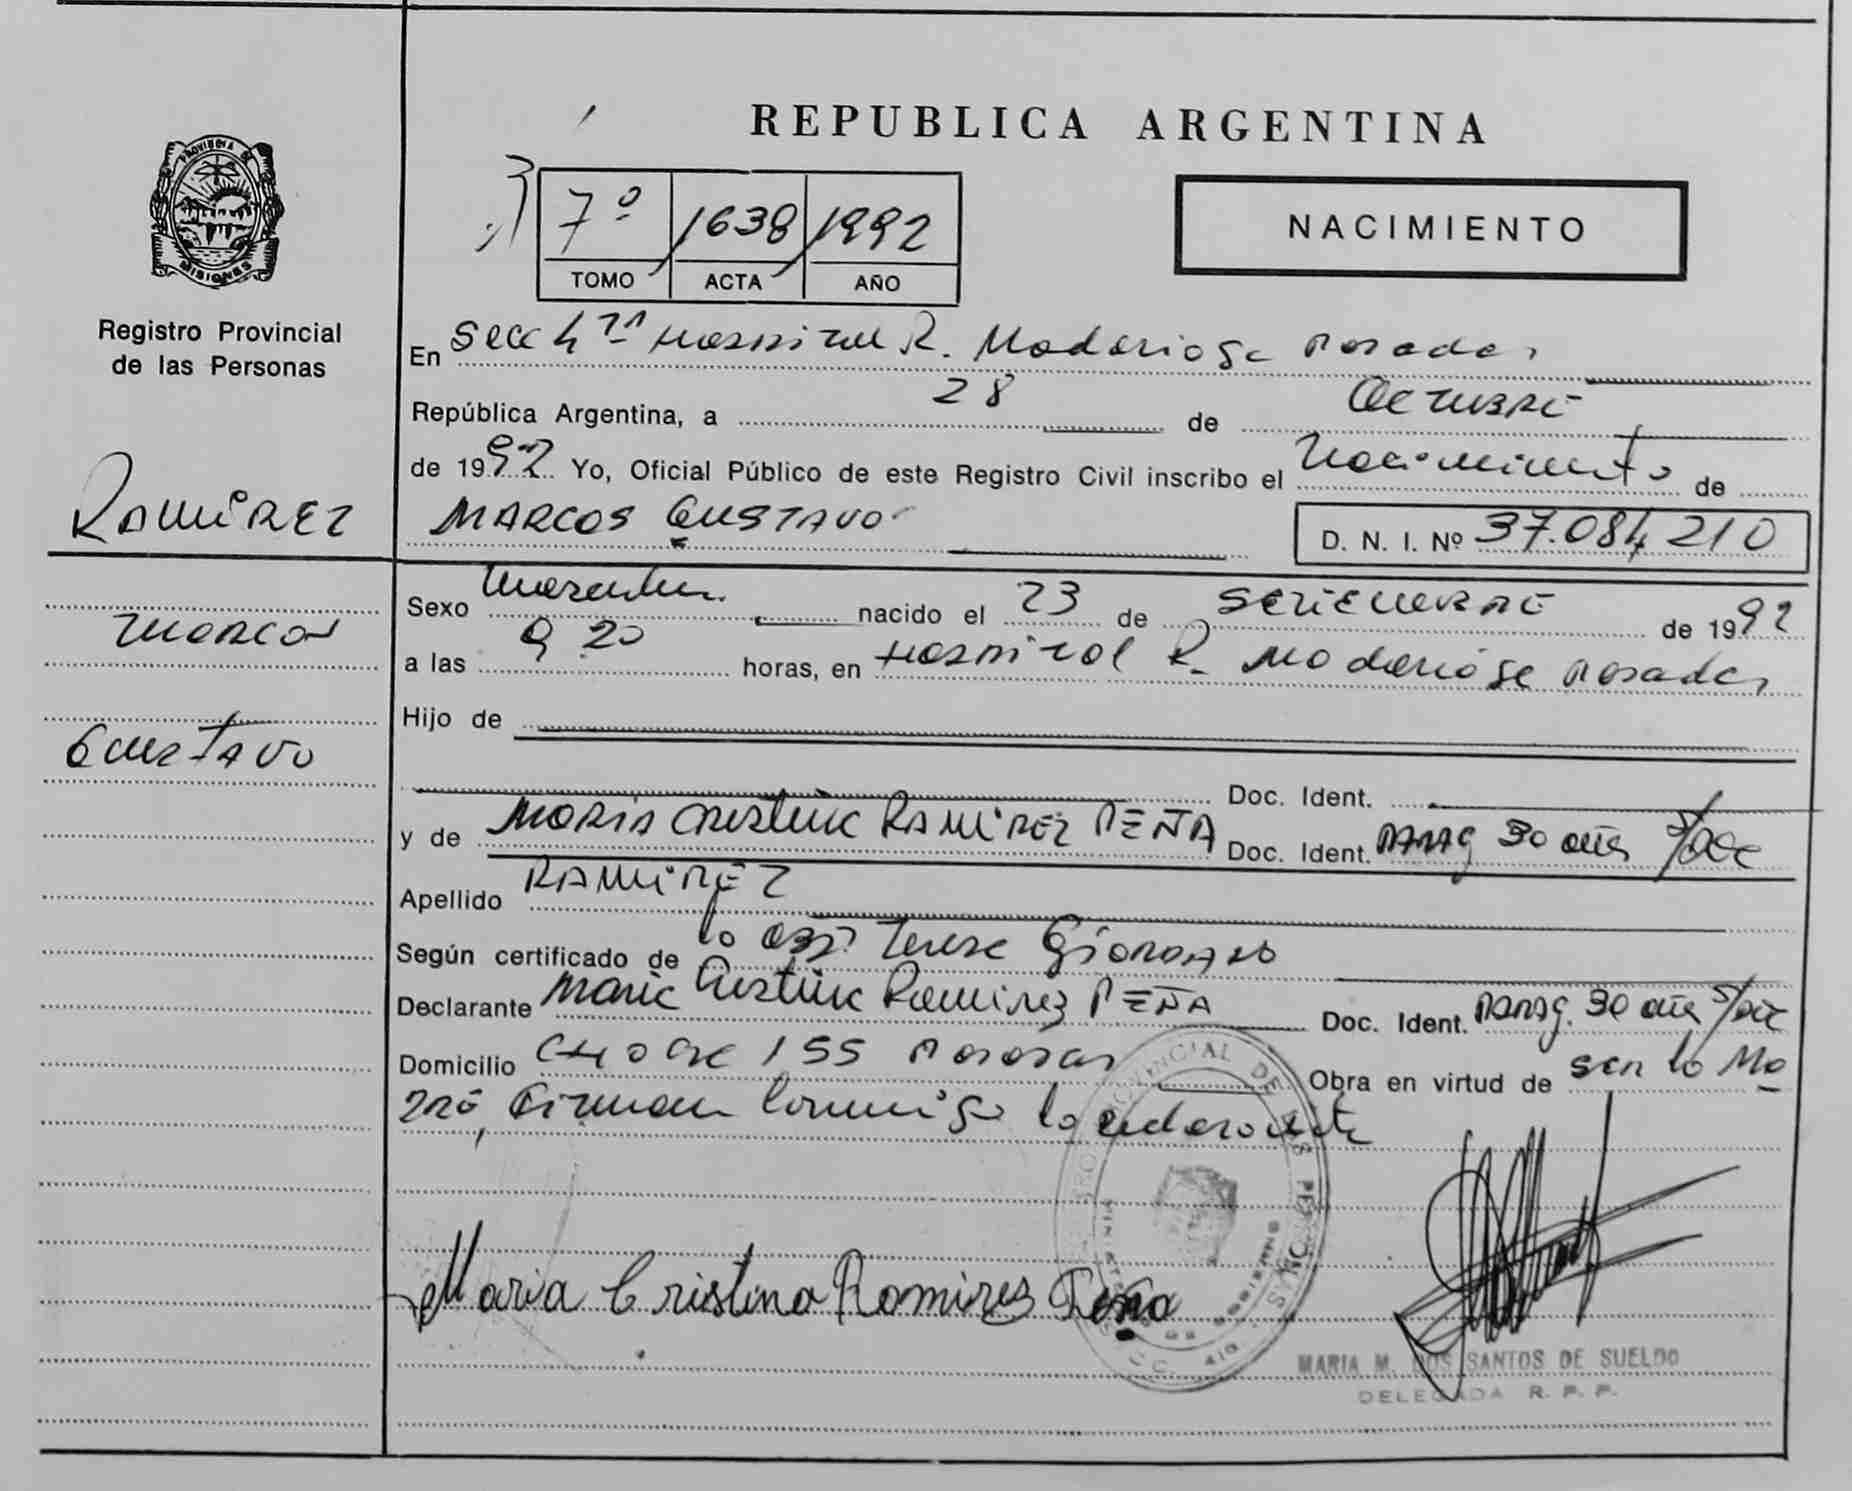 REPUBLICA ARGENTINA
PROVINCIA DE
MISIONES
7º 1638 1992
TOMO ACTA AÑO
NACIMIENTO
Registro Provincial
de las Personas
En Secc 4ª Hospital R. Madariaga Posadas
República Argentina, a 28 de Octubre
de 1992 Yo, Oficial Público de este Registro Civil inscribo el Nacimiento de
RAMIREZ
MARCOS GUSTAVO
D. N. I. Nº 37.084210
Sexo Masculino nacido el 23 de SETIEMBRE de 1992
MARCOS
a las 9 20 horas, en Hospital R. Madariaga Posadas
Hijo de
GUSTAVO
Doc. Ident.
y de Maria Cristina RAMIREZ PEÑA Doc. Ident. Parag 30 años
Apellido RAMIREZ
Según certificado de la Teresa Giordano
Declarante Maria Cristina Ramirez PEÑA Doc. Ident. Parag. 30 años
Domicilio 155 Posadas Obra en virtud de ser la Ma
dre, Firman conmigo la
REGISTRO PROVINCIAL DE LAS PERSONAS
Maria Cristina Ramirez Peña
MARIA M. DOS SANTOS DE SUELDO
DELEGADA R. P. P.